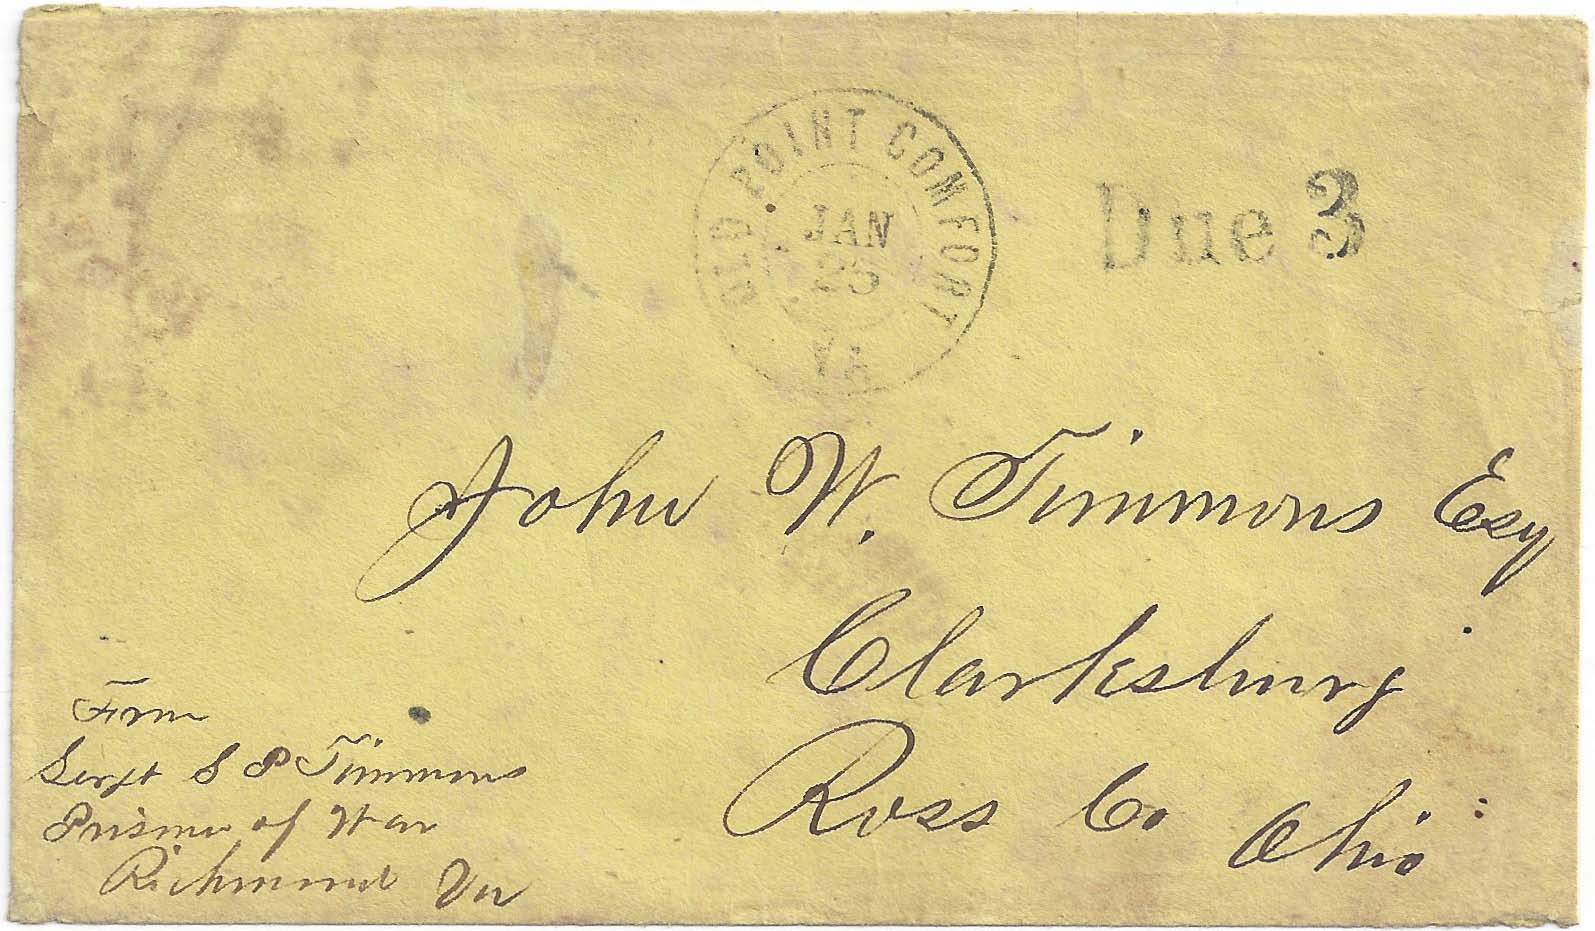 OLD POINT COMFORT
JAN
25
VA
Due 3
John W. Timmons Esq
Clarksburg
Ross Co Ohio
From
Sergt S P Timmons
Prisoner of War
Richmond Va